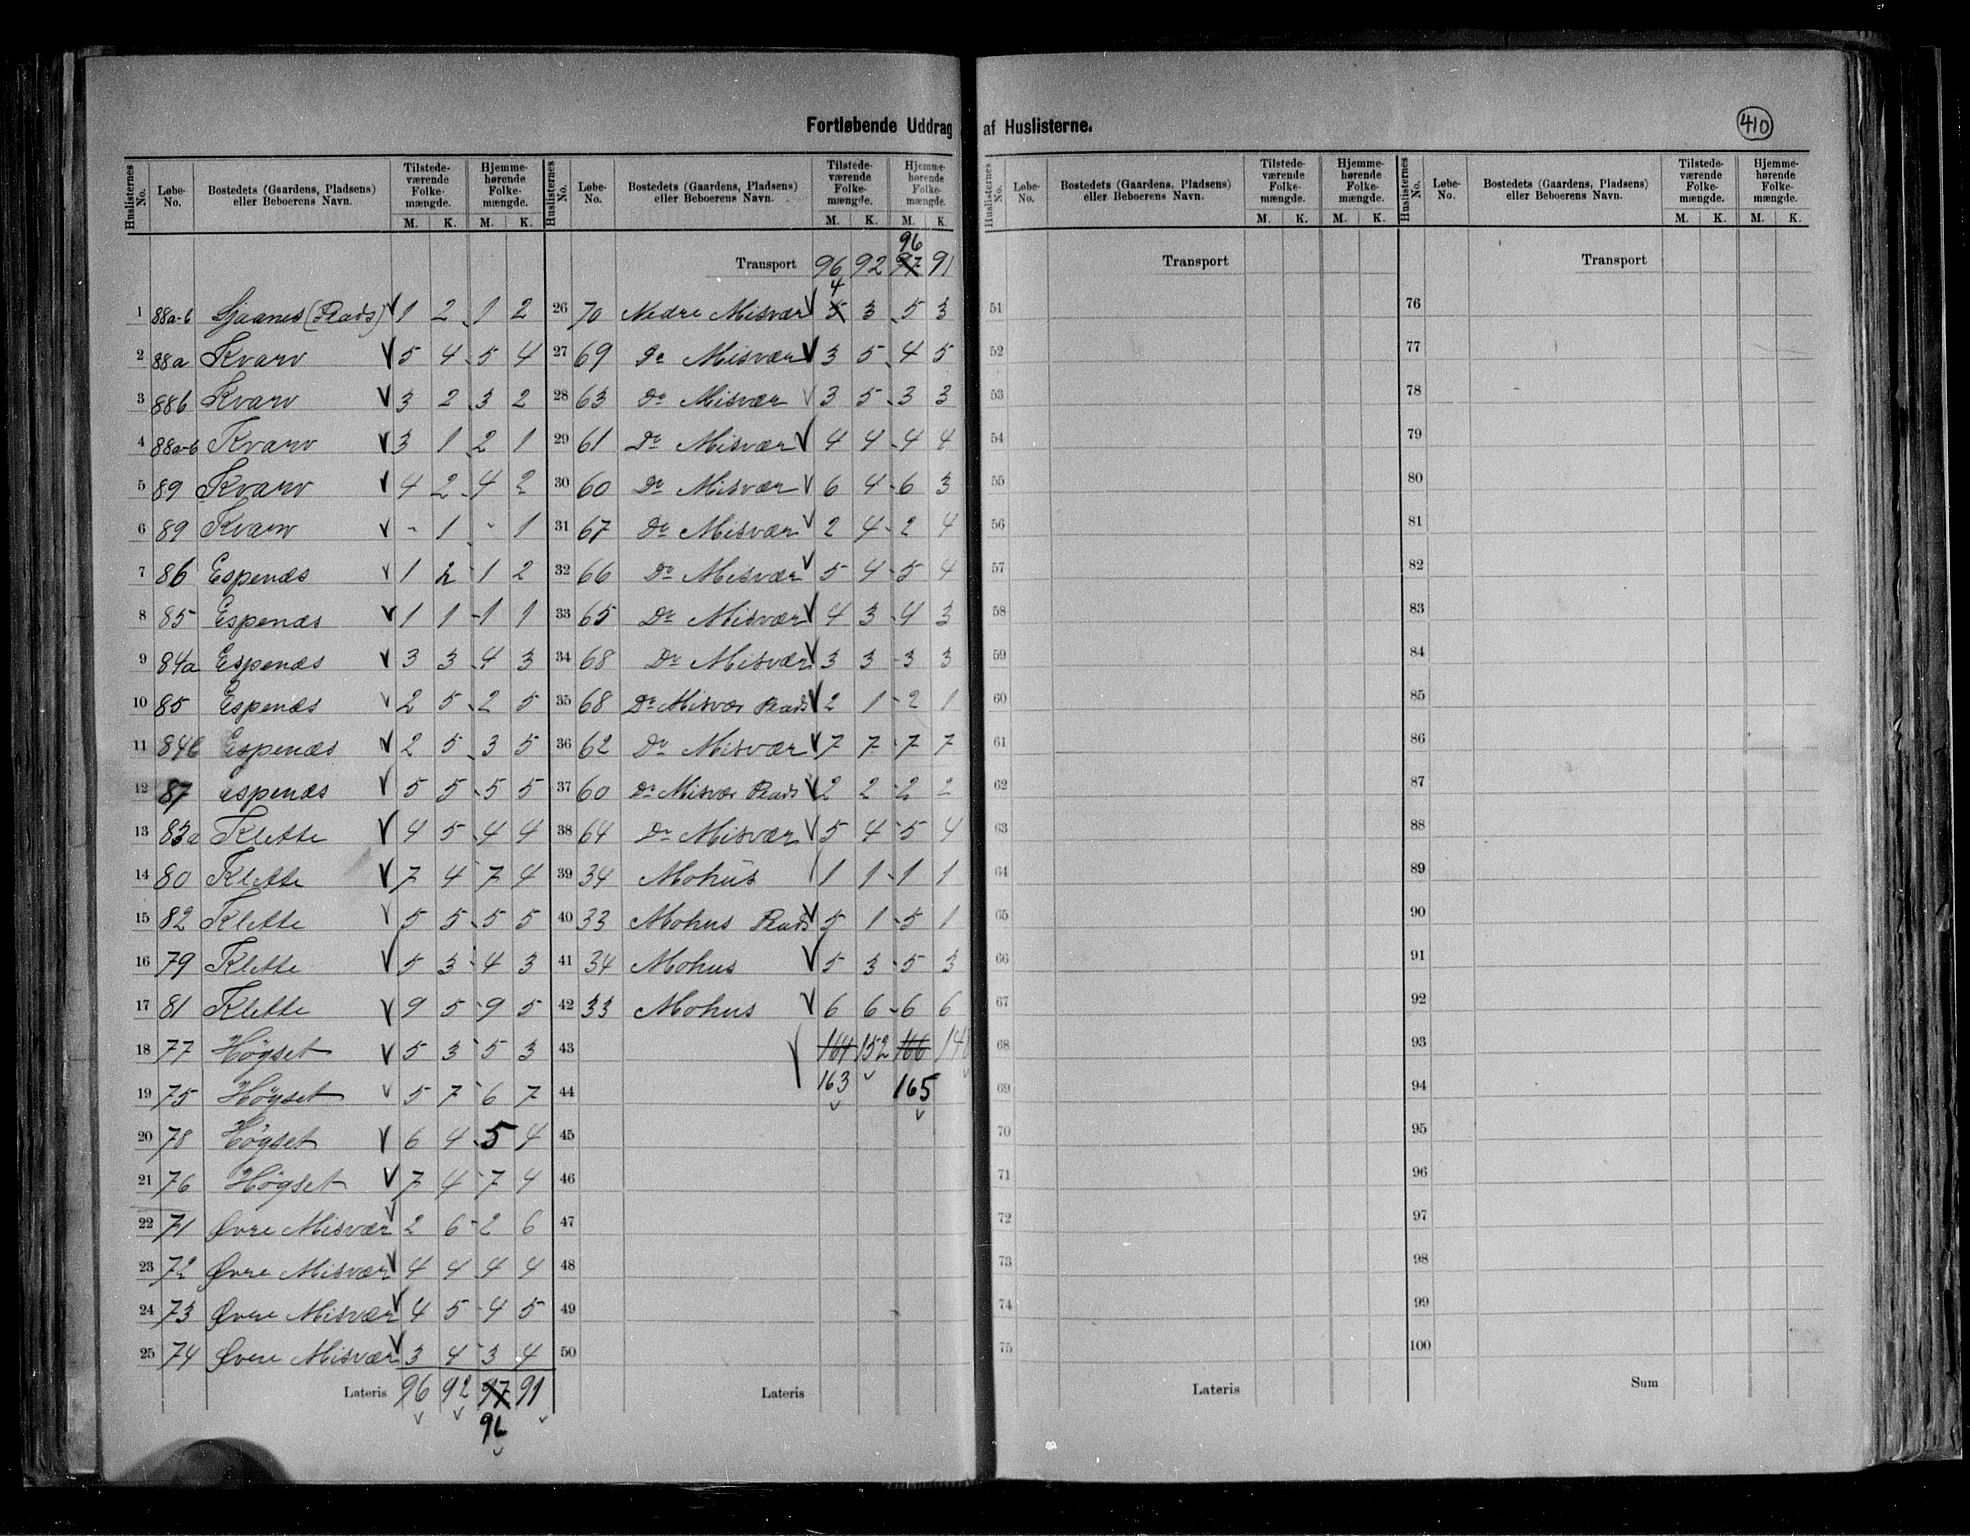 Fortløbende Uddrag af Huslisterne.
410
Huslisternes No. Løbe-No. Bostedets (Gaardens, Pladsens) eller Beboerens Navn. Tilstedeværende Folkemængde. M. K. Hjemmehørende Folkemængde. M. K.
1 88a-b (Plads) 1 2 1 2
2 88a Kvarv 5 4 5 4
3 88b Kvarv 3 2 3 2
4 88a-b Kvarv 3 1 2 1
5 89 Kvarv 4 2 4 2
6 89 Kvarv - 1 - 1
7 86 Espenæs 1 2 1 2
8 85 Espenæs 1 1 1 1
9 84a Espenæs 3 3 4 3
10 85 Espenæs 2 5 2 5
11 84b Espenæs 2 5 3 5
12 87 Espenæs 5 5 5 5
13 83a Klette 4 5 4 4
14 80 Klette 7 4 7 4
15 82 Klette 5 5 5 5
16 79 Klette 5 3 4 3
17 81 Klette 9 5 9 5
18 77 Høgset 5 3 5 3
19 75 Høgset 5 7 6 7
20 78 Høgset 6 4 5 4
21 76 Høgset 7 4 7 4
22 71 Øvre Misvær 2 6 2 6
23 72 Øvre Misvær 4 4 4 4
24 73 Øvre Misvær 4 5 4 5
25 74 Øvre Misvær 3 4 3 4
Lateris 96 92 97 91
96
Huslisternes No. Løbe-No. Bostedets (Gaardens, Pladsens) eller Beboerens Navn. Tilstedeværende Folkemængde. M. K. Hjemmehørende Folkemængde. M. K.
96
Transport 96 92 97 91
4
26 70 Nedre Misvær 5 3 5 3
27 69 Do Misvær 3 5 4 5
28 63 Do Misvær 3 5 3 3
29 61 Do Misvær 4 4 4 4
30 60 Do Misvær 6 4 6 3
31 67 Do Misvær 2 4 2 4
32 66 Do Misvær 5 4 5 4
33 65 Do Misvær 4 3 4 3
34 68 Do Misvær 3 3 3 3
35 68 Do Misvær Plads 2 1 2 1
36 62 Do Misvær 7 7 7 7
37 60 Do Misvær Plads 2 2 2 2
38 64 Do Misvær 5 4 5 4
39 34 Mohus 1 1 1 1
40 33 Mohus Plads 5 1 5 1
41 34 Mohus 5 3 5 3
42 33 Mohus 6 6 6 6
43 164 152 166
44 163 165
45
46
47
48
49
50
Lateris
Huslisternes No. Løbe-No. Bostedets (Gaardens, Pladsens) eller Beboerens Navn. Tilstedeværende Folkemængde. M. K. Hjemmehørende Folkemængde. M. K.
Transport
51
52
53
54
55
56
57
58
59
60
61
62
63
64
65
66
67
68
69
70
71
72
73
74
75
Lateris
Huslisternes No. Løbe-No. Bostedets (Gaardens, Pladsens) eller Beboerens Navn. Tilstedeværende Folkemængde. M. K. Hjemmehørende Folkemængde. M. K.
Transport
76
77
78
79
80
81
82
83
84
85
86
87
88
89
90
91
92
93
94
95
96
97
98
99
100
Sum